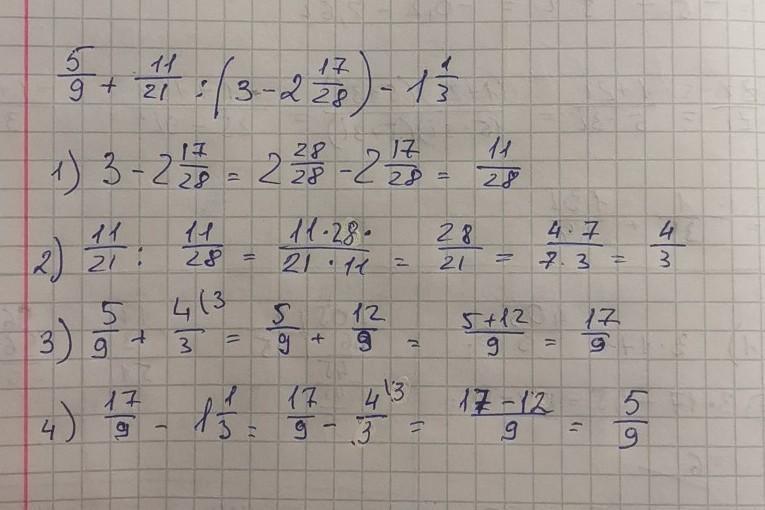 5/9 + 11/21 : (3 - 2 17/28) - 1 1/3
1) 3 - 2 17/28 = 2 28/28 - 2 17/28 = 11/28
2) 11/21 : 11/28 = 11·28·/21·11 = 28/21 = 4·7/7·3 = 4/3
3) 5/9 + 4/3 (3 = 5/9 + 12/9 = 5+12/9 = 17/9
4) 17/9 - 1 1/3 = 17/9 - 4/3 \3 = 17-12/9 = 5/9